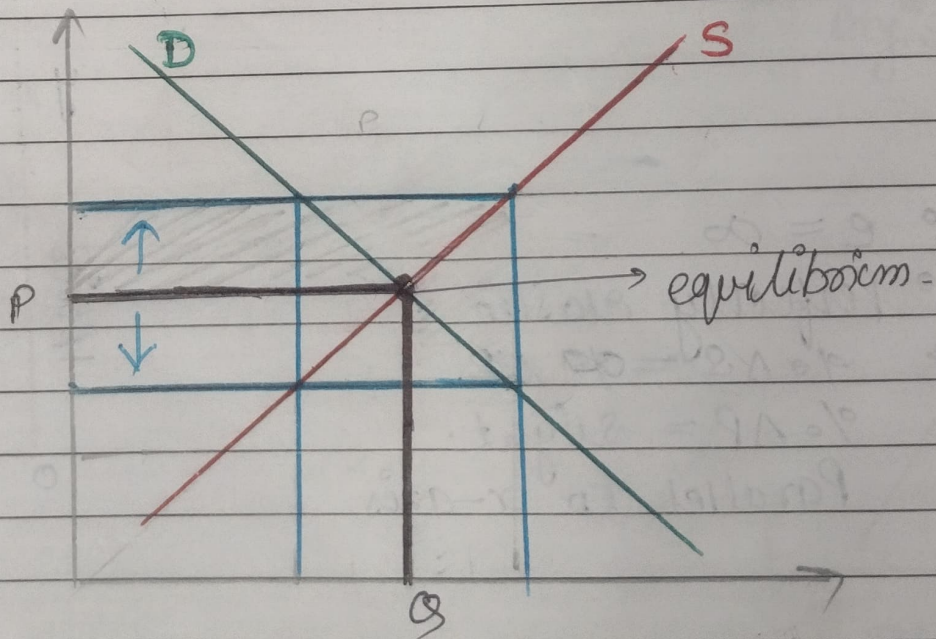 D
S
P
equilibrium
Q